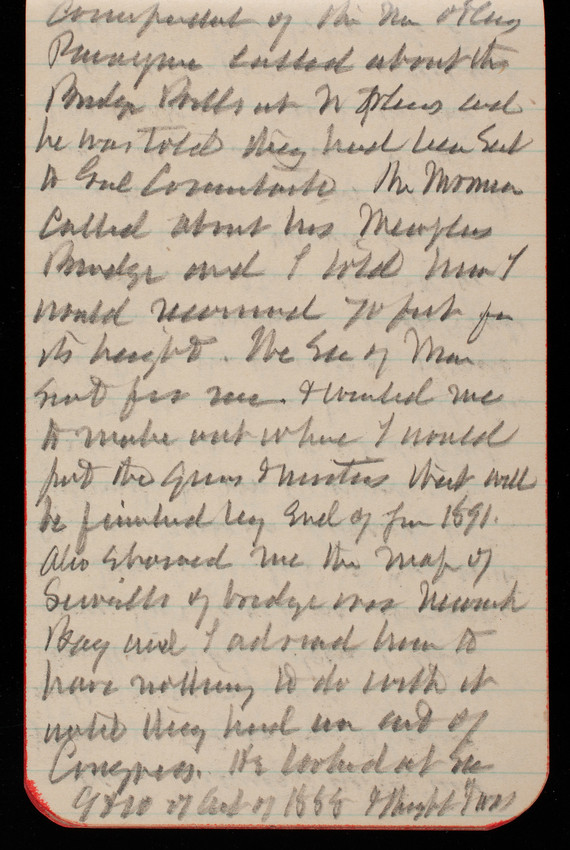 Correspondent of the New Orleans
Picayune called about the
Bridge Bills at N Orleans and
he was told they had been sent
to Genl Comstock. Mr Morison
called about his Memphis
Bridge and I told him I
would recommend 70 feet for
its height. The Sec of War
sent for me. & wanted me
to make out where I would
put the guns & mortars that will
be finished by End of Jun 1891.
Also showed me the map of
of bridge over Newark
Bay and I advised him to
have nothing to do with it
until they had an act of
Congress. He looked at Sec
9 & 10 of Act of 1888 & thought I was